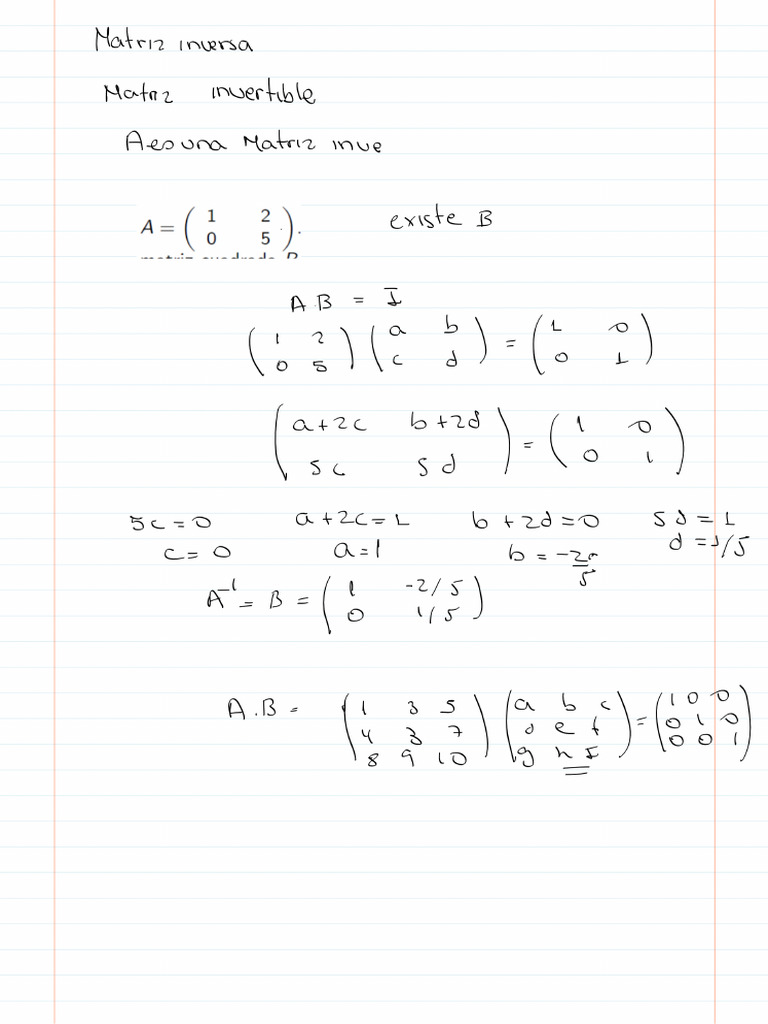 Matriz inversa
Matriz invertible
A es una Matriz inve
A = ( 1 2 ; 0 5 ). existe B
A.B = I
( 1 2 ; 0 5 ) ( a b ; c d ) = ( 1 0 ; 0 1 )
( a+2c b+2d ; 5c 5d ) = ( 1 0 ; 0 1 )
5c=0 a+2c=1 b+2d=0 5d=1
c=0 a=1 b=-2/5 d=1/5
A⁻¹ = B = ( 1 -2/5 ; 0 1/5 )
A.B = ( 1 3 5 ; 4 3 7 ; 8 9 10 ) ( a b c ; d e f ; g h I ) = ( 1 0 0 ; 0 1 0 ; 0 0 1 )